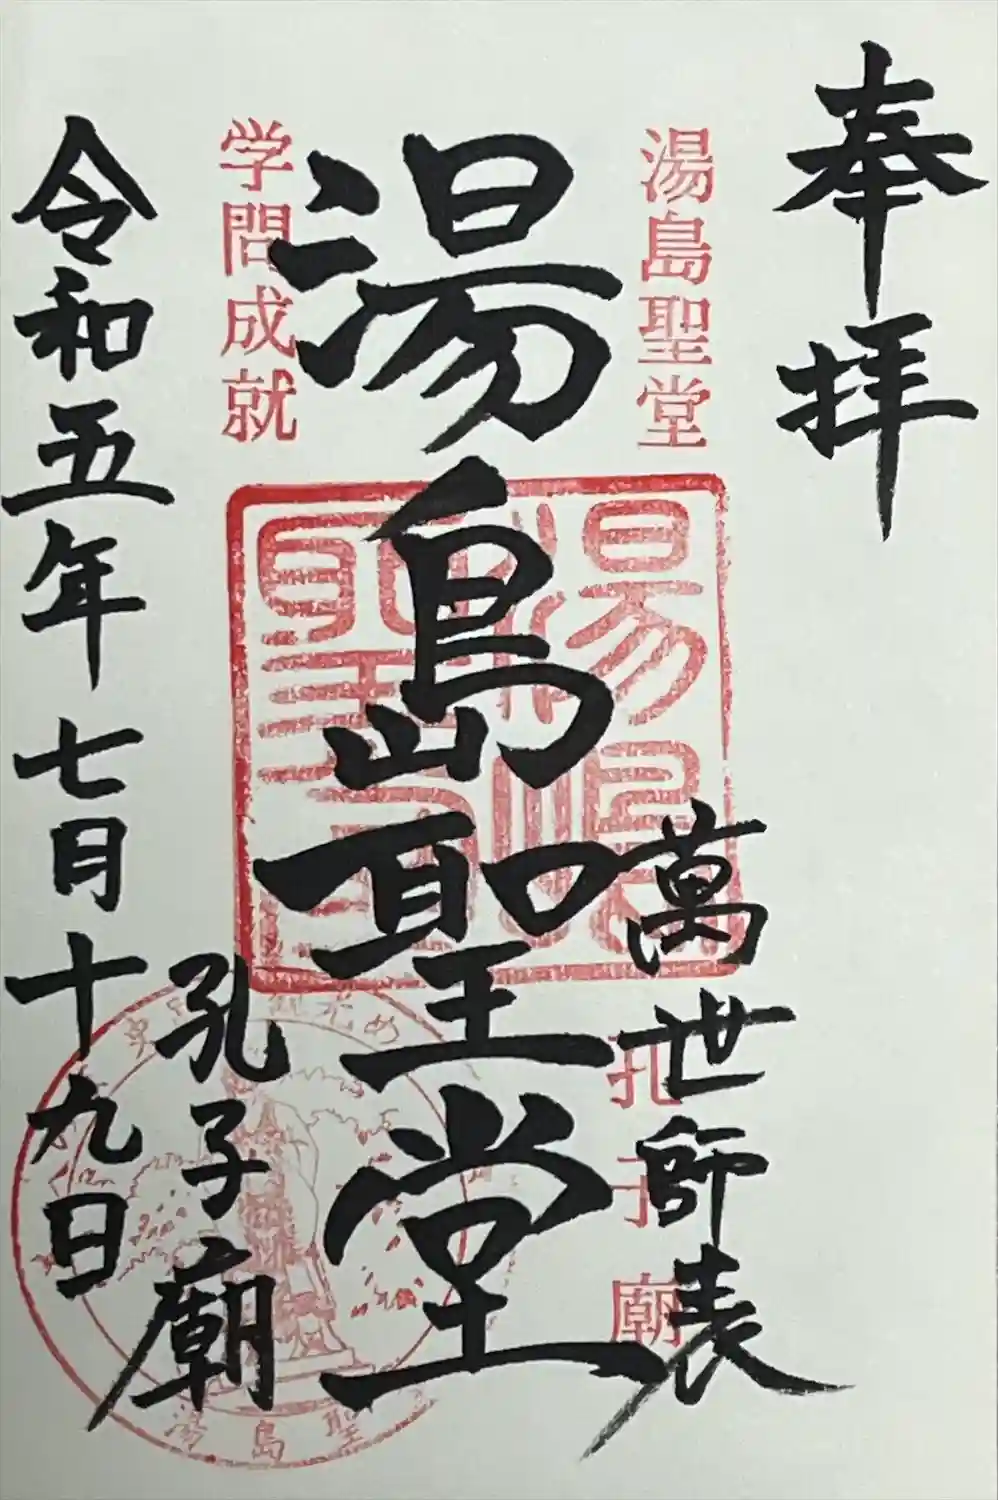 奉拝
湯島聖堂
萬世師表
孔子廟
湯島聖堂
湯島聖堂
学問成就
孔子廟
令和五年七月十九日
湯島聖